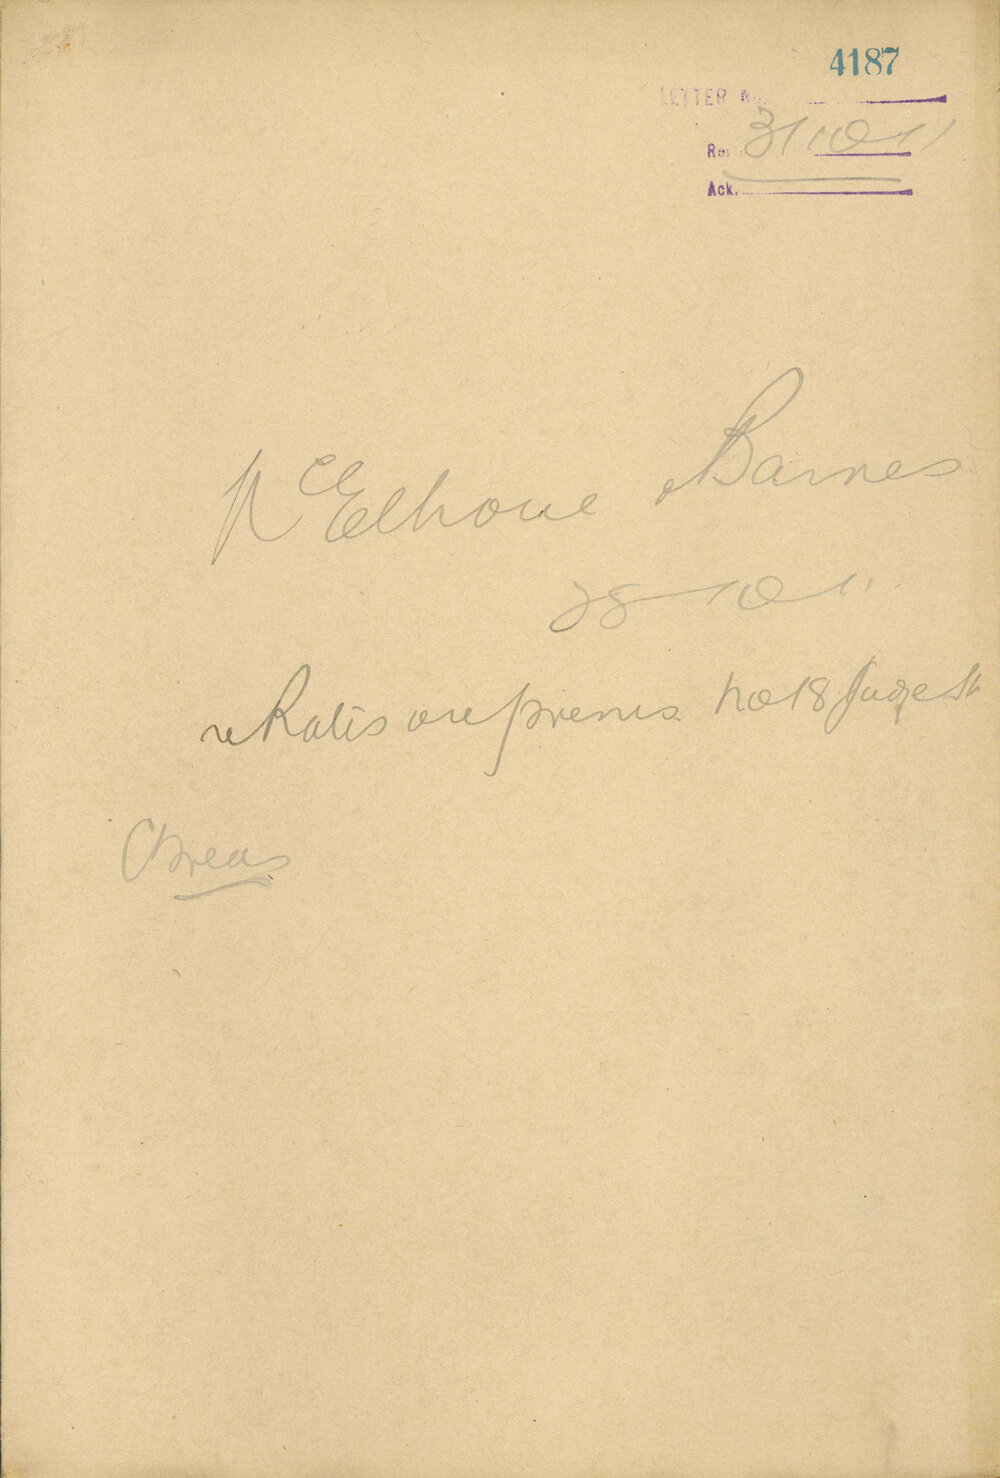 4187
LETTER No.
Re. 31 10 11
Ack.
McElhone & Barnes
28-10 11
re Rates on premis no 18 Judge St
Treas